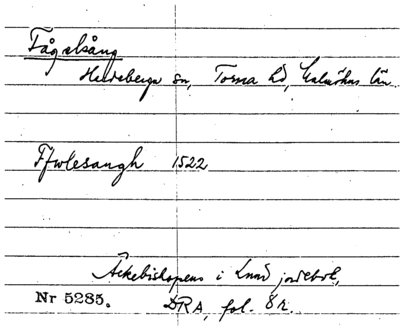 Fågelsång
Hardeberga sn, Torna hd, Malmöhus län.
Ffwlesangh 1522
Ärkebiskopens i Lund jordebok,
Nr 5285. DRA, fol. 8 r.